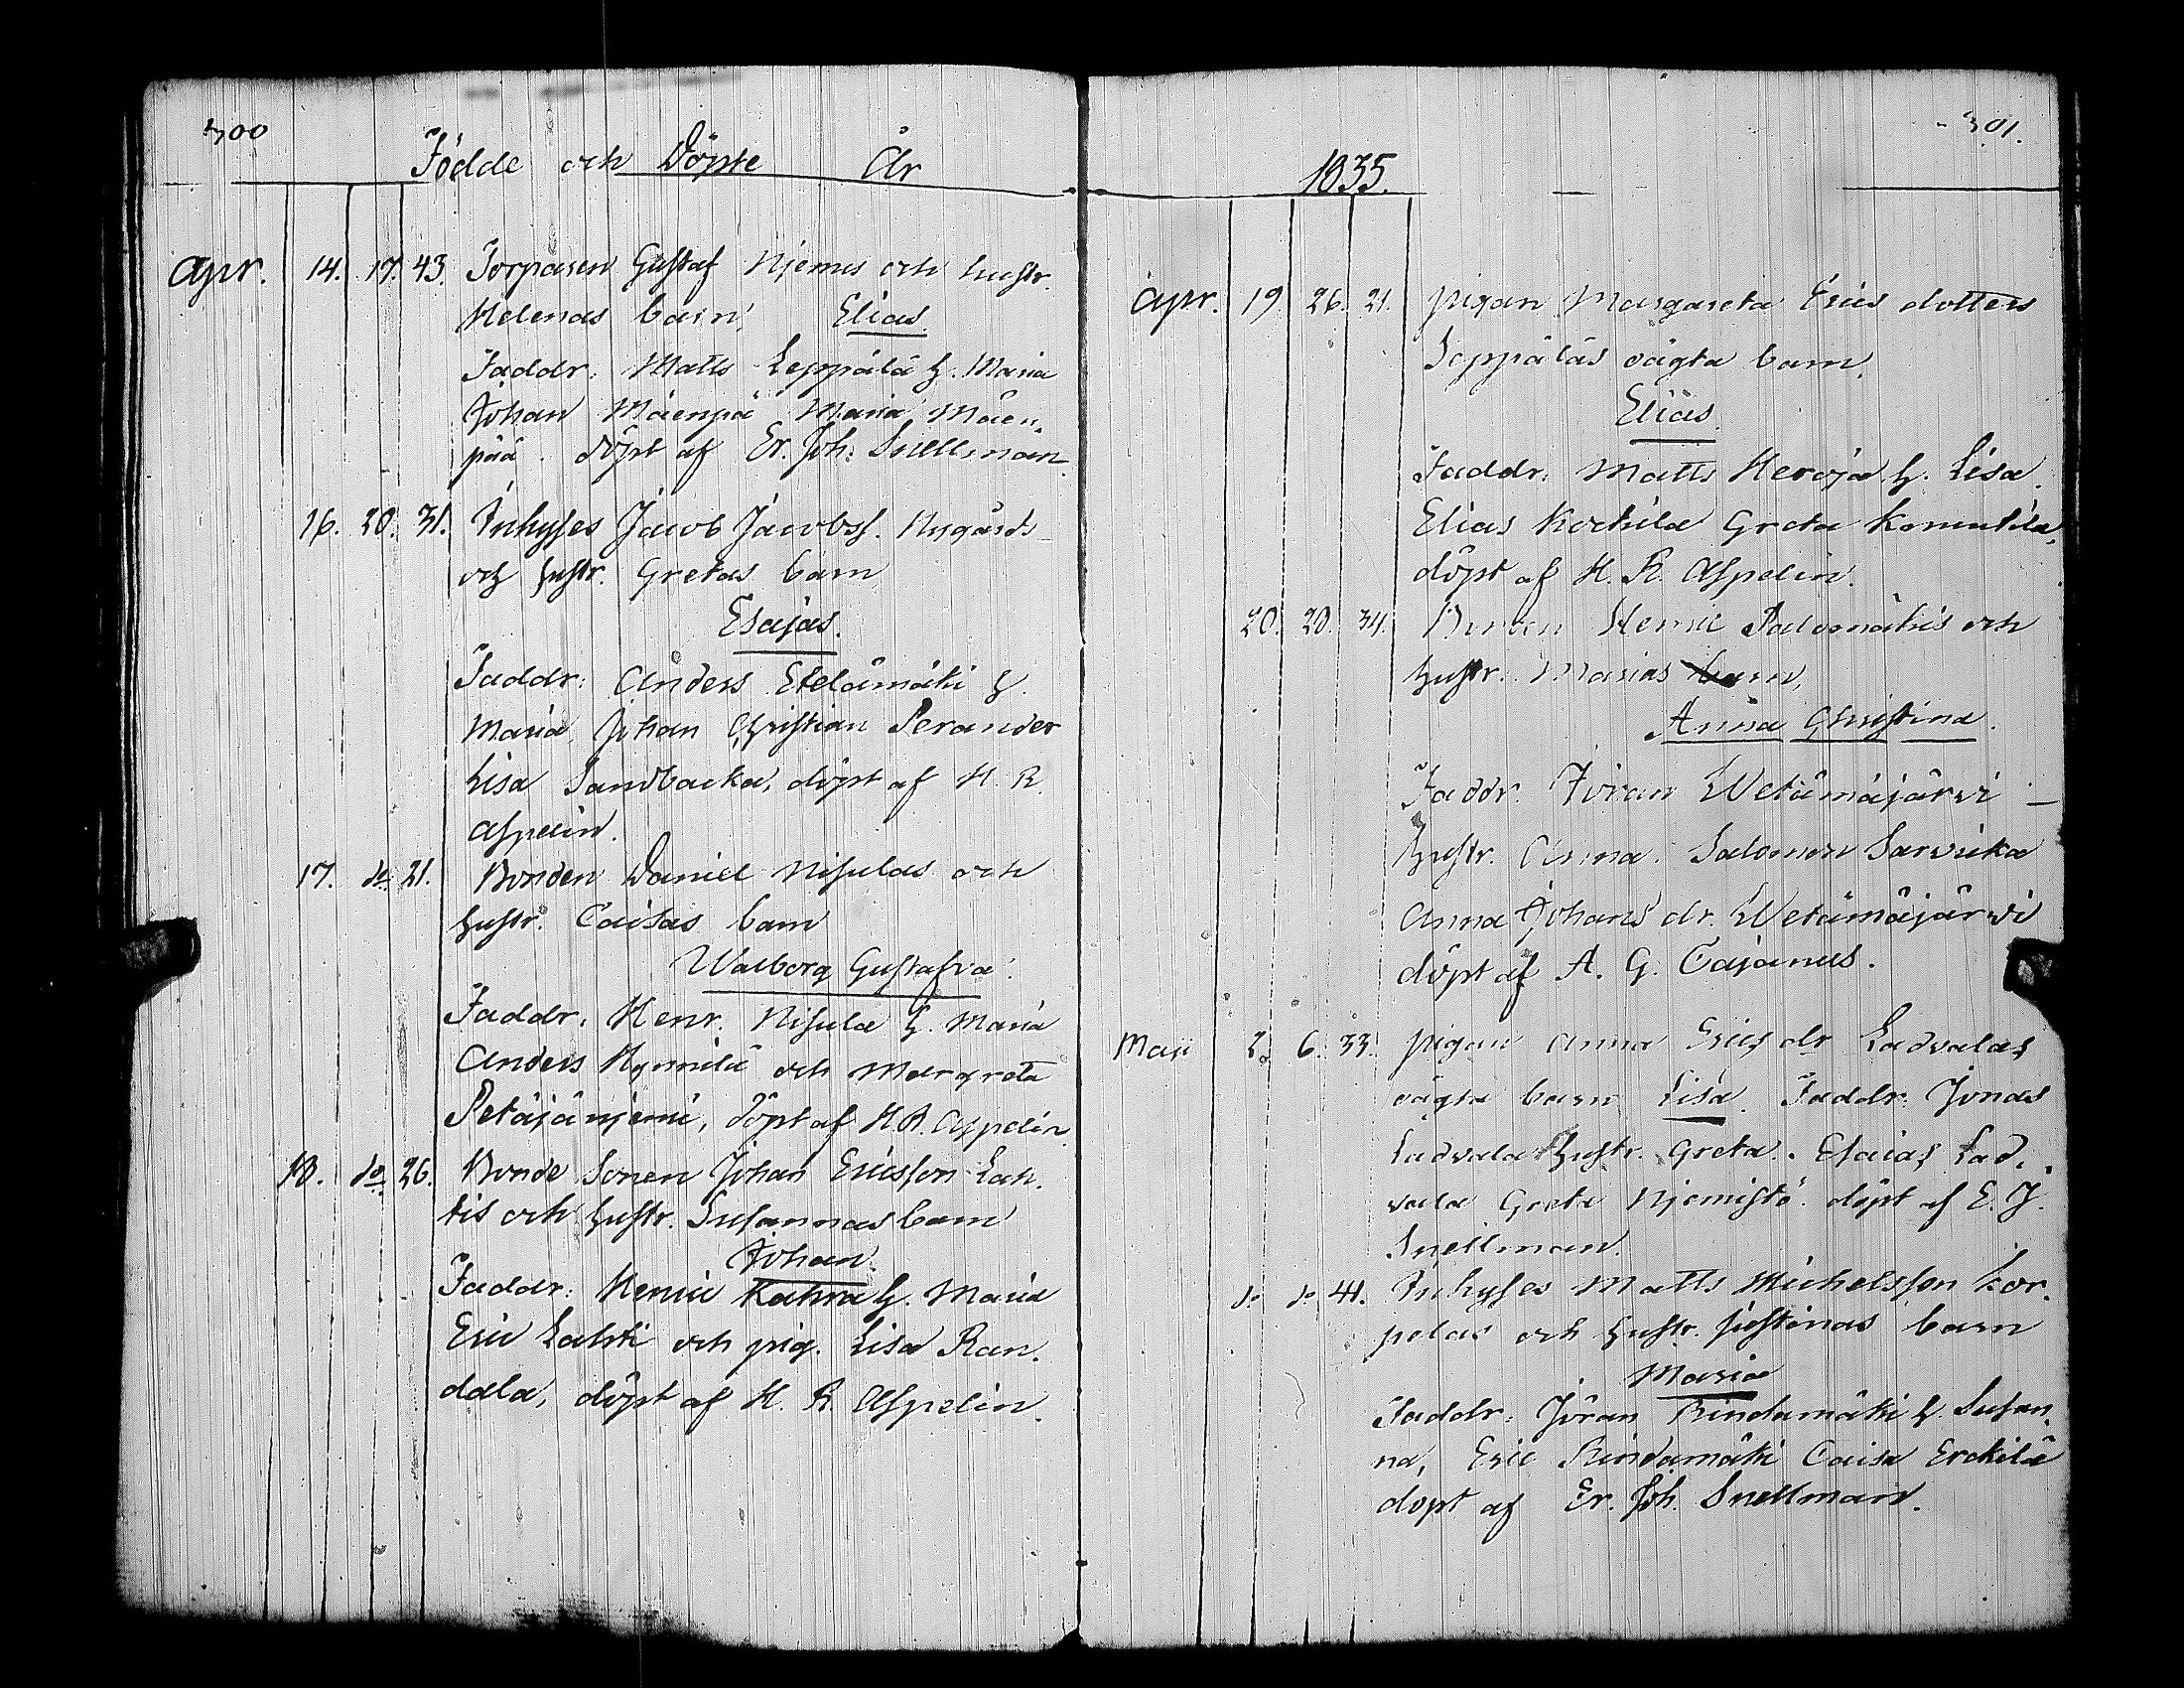 300
Födde och Döpte År
Apr. 14. 17. 43. Torparen Gustaf Njemis och hustr.
Helenas barn, Elias.
Faddr. Matts Leppälä h. Maria
Johan Mäenpä Maria Mäen,
pää. döpt af Er. Joh: Snellman.
16. 20. 31. Inhyses Jacob Jacobss. Nygårds
och hustr. Gretas barn
Esajas.
Faddr: Anders Etelämäki h.
Maria, Johan Christian Perander
Lisa Sandbacka, döpt af H. R.
Aspelin.
17. do 21. Bonden Daniel Nisulas och
hustr. Caisas barn
Walborg Gustafva.
Faddr. Henr. Nisula h. Maria
Anders Hynnilä och Margreta
Petäjäniemi, döpt af H. R. Aspelin.
18. do 26. Bonde Sonen Johan Ericsson Lah,
tis och hustr. Susannas barn
Johan.
Faddr: Henric h. Maria
Eric Lahti och pig. Lisa Ran,
dala, döpt af H. R. Aspelin.
301.
1835.
Apr. 19. 26. 21. pigan Margareta Erics dotters
Seppäläs oägta barn.
Elias.
Faddr. Matts Heroja h. Lisa.
Elias Greta
döpt af H. R. Aspelin.
20. 20. 34. Henric Palomäkis och
hustr. Marias barn,
Anna Christina.
Faddr. Jöran Wetämäjärvi –
hustr. Anna. Salomon Sarvicka
Anna Johans dr. Wetämäjärvi
döpt af A. G. Cajanus.
Maji 2. 6. 33. pigan Anna Erics dr Ladvalas
oägta barn Lisa. Faddr. Jonas
Ladvala hustr. Greta. Esaias Lad,
vala Greta Njemistö. döpt af E. J.
Snellman.
do do 41. Inhyses Matts Michelsson Kor,
pelas och hustr. barn
Maria
Faddr. Jöran Rindamäki h. Susan,
na, Eric Rindamäki Caisa Erckilä
döpt af Er. Joh. Snellman.